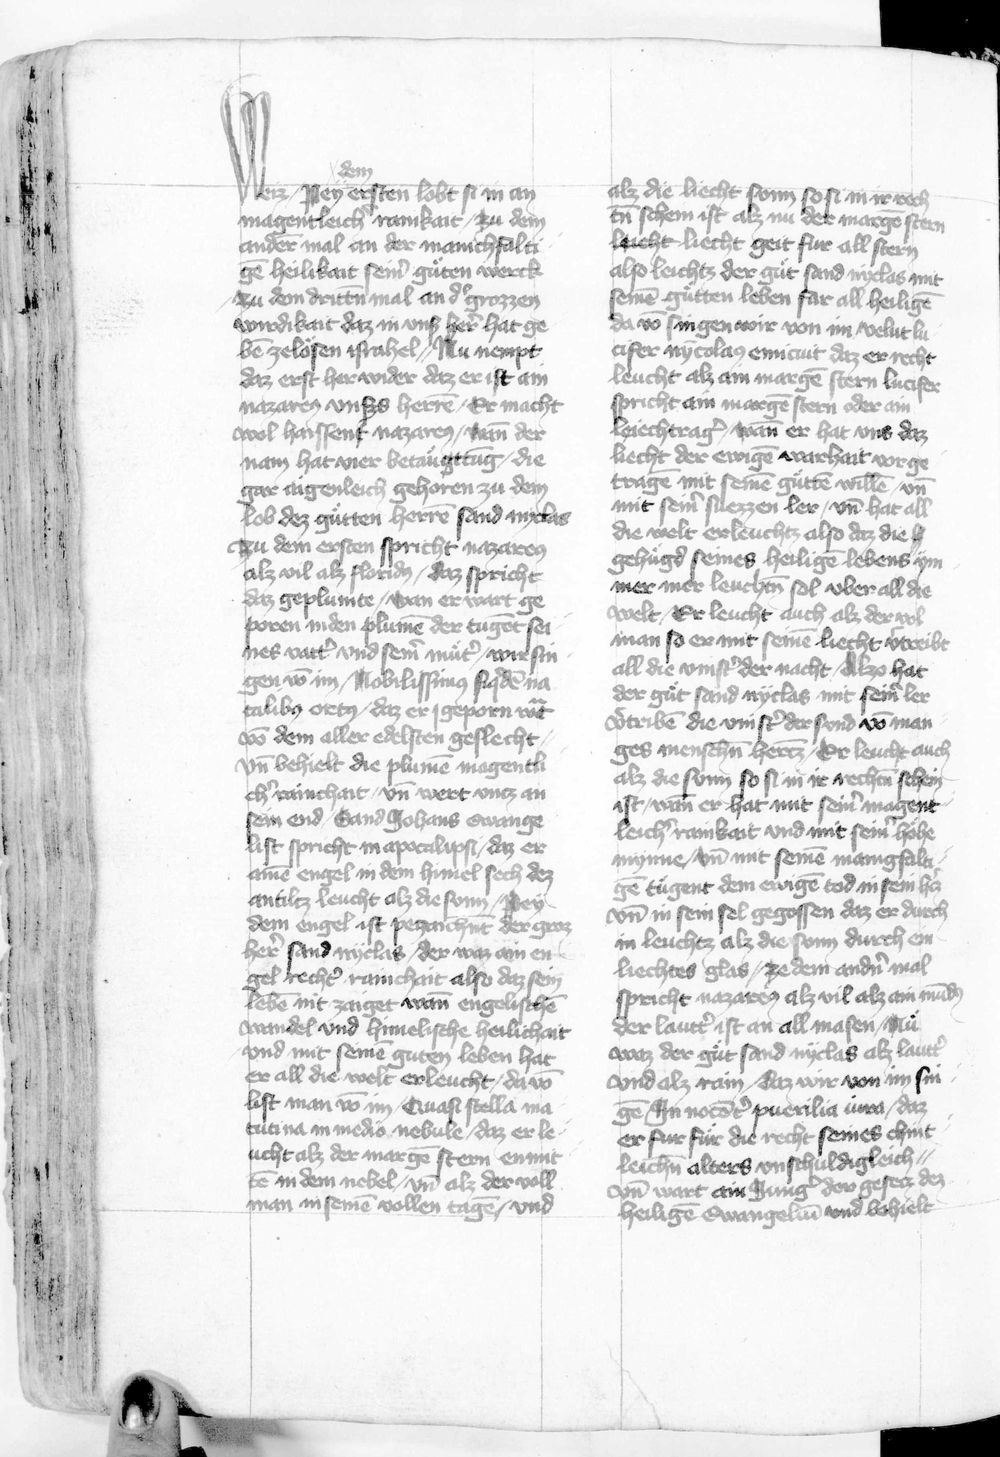 dem
Weiz / Pey ersten lobt si in an
magentleich͛ rainkait / Zu dem
ander mal an der manichfalti
gē heilikait sein͛ güten werck
Zu dem drittn̄ mal an d͛ grozzen
wirdikait daz in vns͛ her͛ hat ge
bē zelösen israhel // Nu nempt
daz erst her wider daz er ist ain
nazareꝰ vnsers herrē / Er macht
wol haissens nazareꝰ / wan̄ der
nam hat vier betaügttūg / die
gar aigenleich gehoren zu dem
lob dez gütten herrē sand nyclas
Zu dem ersten spricht nazareꝰ
alz vil alz floridꝰ / daz spricht
daz geplumte / wan er wart ge
poren in den plumē der tugēt sei
nes vatt͛ vnd sein͛ müt͛ / wir sin
gen vō im / Nobilissimꝰ siq̇dē na
talibꝰ ortꝰ / daz er geporn wͣt
vō dem aller edelsten geslecht /
vn̄ behielt die plume magentli
ch͛ rainchait / vn̄ wert vncz an
sein end / Sand Johans ewange
list spricht in apocalipsi / daz er
ainē engel in dem himel sech dez
antlitz leucht alz die sonn / Pey
dem engel ist pezaichn̄t der groz
her͛ sand nyclas / der waz ain en
gel recht͛ rainchait also daz sein
lebē nit zaiget wan̄ engelischē
wandel vnd himelische heilichait
vnd mit seinē guten leben hat
er all die welt erleucht / da vō
list man vō im / Quasi stella ma
tutina in medio nebule / daz er le
ucht alz der marge stern enmit
tē in dem nebel / vn̄ alz der voll
man in seinē vollen tagē / vnd
alz die liecht sunn so si in ir rech
tn̄ schein ist alz nu der margē stern
leicht liecht geit fur all stern
also leichtz der güt sand nyclas mit
seinē gütten leben für all heiligē
da vō singen wir von im / velut lu
cifer nycolaꝰ emicuit daz er recht
leucht alz ain margē stern lucifer
spricht ain margē stern oder ain
leiechtrag͛ / wan̄ er hat vns daz
liecht der ewigē warhait vor ge
tragē mit seinē güttē willē / vn̄
mit sein͛ suezzen ler / vn̄ hat all
die welt erleuchtz also daz die
gehügd seines heiligē lebens ym
mer mer leuchtn̄ sol vber all die
welt / Er leucht auch alz der vol
man so er mit seinē liecht v͛treibt
all die vinst͛ der nacht / Alzo hat
der güt sand nyclas mit sein͛ ler
v͛tribē die vinst͛ der sund vō man
ges menschn̄ hertz / Er leucht auch
alz die sunn so si in ir rechtn̄ schein
ist / wan̄ er hat mit sein͛ magent
leich͛ rainkait vnd mit sein͛ höhe
mynne / vn̄ mit seinē manigfalti
gē tügent dem ewigē tod in sein h͛z
vn̄ in sein sel gegossen daz er durch
in leuchtz alz die sonn durch ein
liechtes glas / ze dem andn͛ mal
spricht nazareꝰ alz vil alz ain mūdꝰ
der lautt͛ ist an all masen / Nü
waz der güt sand nyclas alz lautt͛
vnd alz rain / daz wir von im sin
gē In nocēt͛ puerilia iura / daz
er fur für die recht seines chint
leichn̄ alters vnschuldigleich //
vn̄ wart ain Jung͛ der gesetz dez
heiligē Ewangeliū vnd behielt